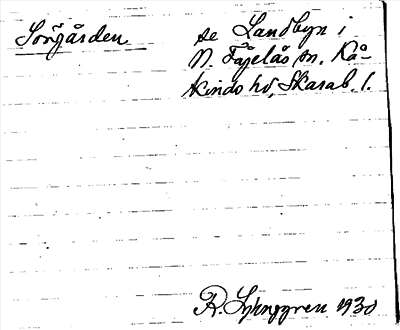 Sörgården
se Landbyn i
N. Fågelås sn. Kå-
kinds hd, Skarab. l.
R. Ljunggren 1930